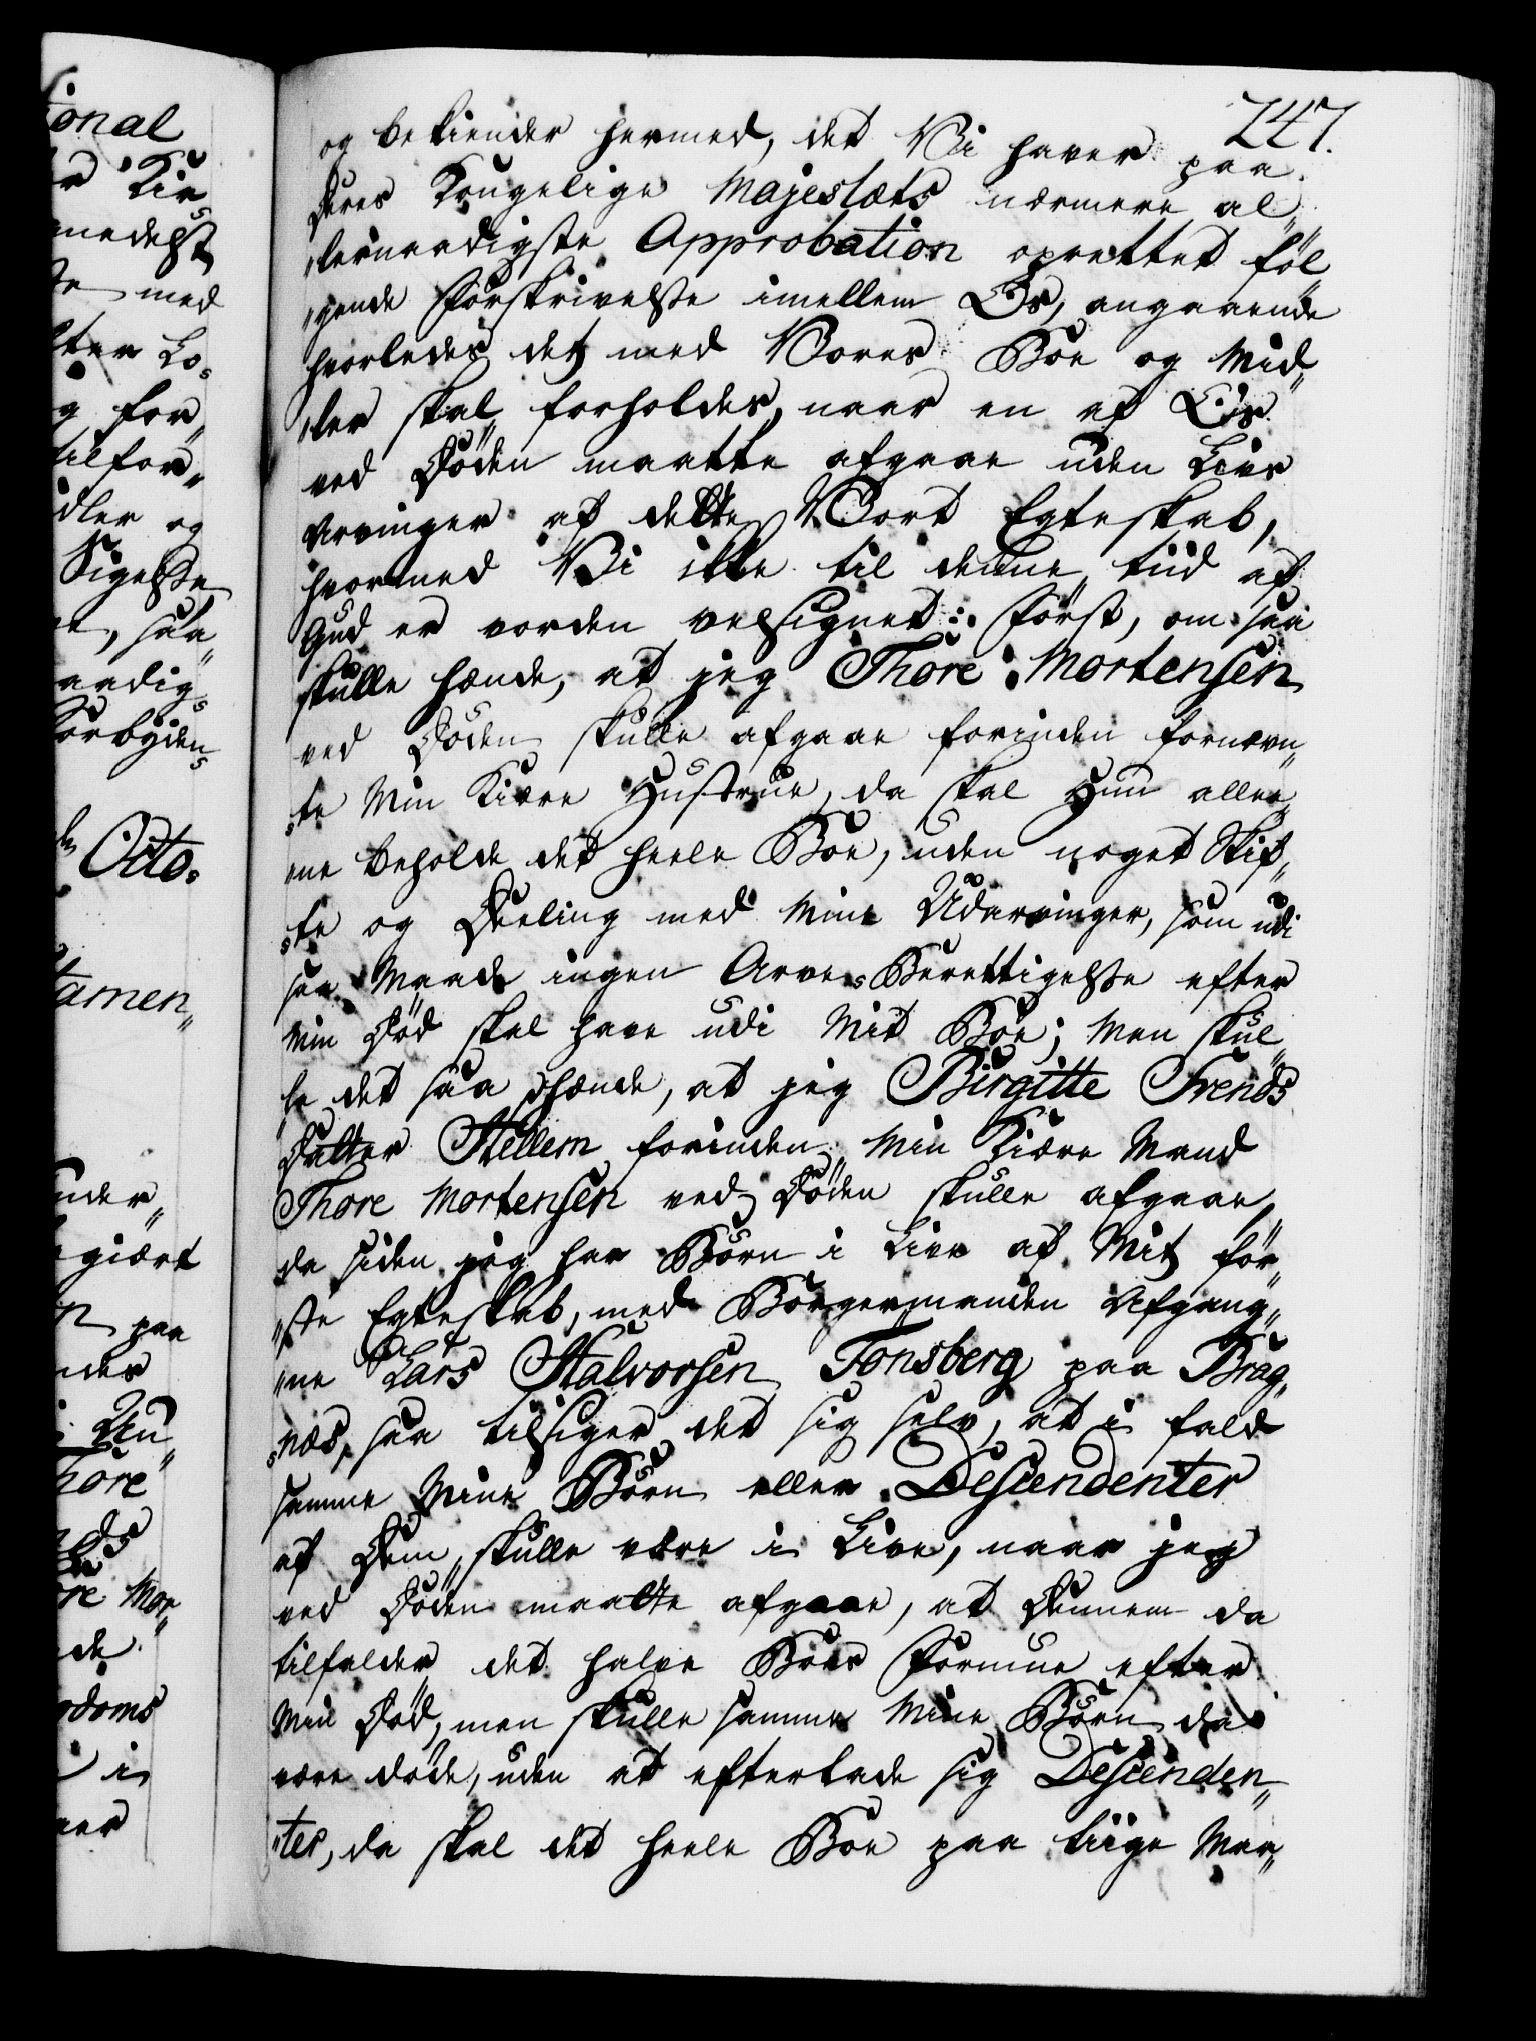 247.
og bekiender hermed, det Vi haver paa
Deres Kongelige Majestæts nærmere al„
„lernaadigste Approbation oprettet føl„
„gende Forskrivelse imellem Os, angaaende
hvorledes det med Vores Boe og Mid„
„ler skal forholdes, naar en af Os
ved Døden maatte afgaae uden Livs
Arvinger af dette Vort Egteskab,
hvormed Vi ikke til denne tiid af
Gud er vorden velsignet: Først, om saa
skulle hænde, at jeg Thore Mortensen
ved Døden skulle afgaae forinden fornævn„
„te Min Kiære Hustrue, da skal Hun allee„
„ne beholde det heele Boe, uden noget Skif„
„te og Deeling med Mine Udarvinger, som udi
saa Maade ingen Arve-Berettigelse efter
Min Død skal have udi Mit Boe; Men skul„
„le det saa hænde, at jeg Birgitte Svends
Datter Hellem forinden Min Kiære Mand
Thore Mortensen ved Døden skulle afgaae,
da siden jeg har Børn i Live af Mit før„
„ste Egteskab, med Borgermanden Afgang„
„ne Lars Halvorsen Tonsberg paa Brag„
„næs, saa tilsiger det sig selv, at i fald
samme Mine Børn eller Descendenter
af Dem, skulle være i Live, naar jeg
ved Døden maatte afgaae, at Dennem da
tilfalder det halve Boes Formue efter
Min Død, men skulle samme Mine Børn da
være døde, uden at efterlade sig Descenden„
„ter, da skal det heele Boe paa liige Maa„